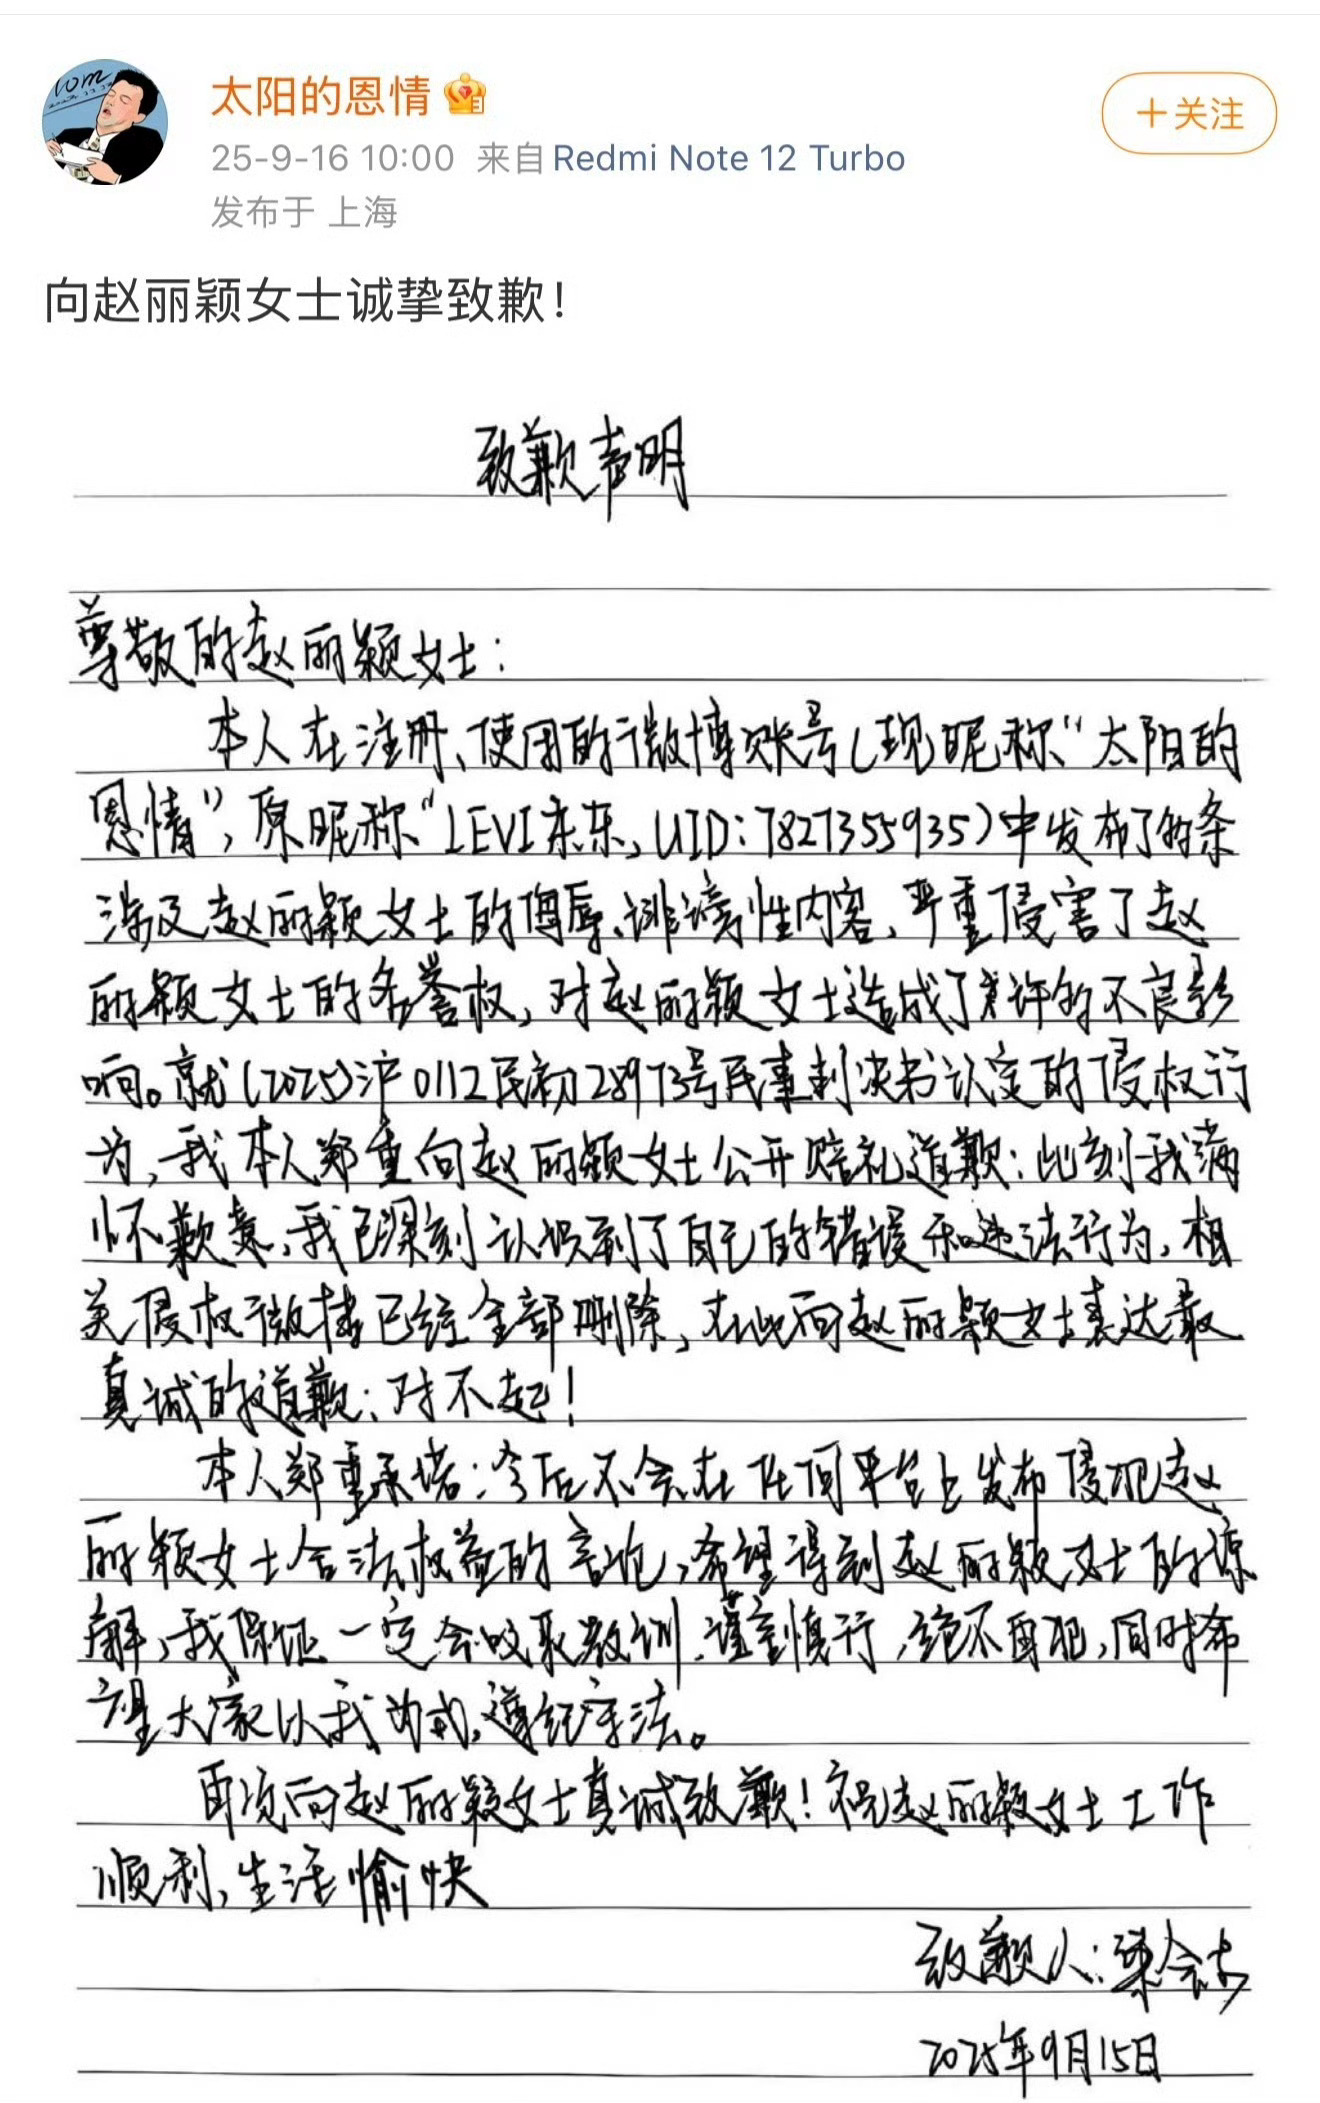 太阳的恩情
＋关注
25-9-16 10:00 来自 Redmi Note 12 Turbo
发布于 上海
向赵丽颖女士诚挚致歉！
致歉声明
尊敬的赵丽颖女士：
本人在注册、使用的微博账号（现昵称“太阳的
恩情”，原昵称“LEVI东东，UID：7827355935）中发布了的条
涉及赵丽颖女士的侮辱、诽谤性内容，严重侵害了赵
丽颖女士的名誉权，对赵丽颖女士造成了的不良影
响。就（2025）沪0112民初28973号民事判决书认定的侵权行
为，我本人郑重向赵丽颖女士公开赔礼道歉：此刻我满
怀歉意，我已深刻认识到了自己的错误和违法行为，相
关侵权微博已经全部删除，在此向赵丽颖女士表达最
真诚的道歉：对不起！
本人郑重承诺：今后不会在任何平台上发布侵犯赵
丽颖女士合法权益的言论，希望得到赵丽颖女士的谅
解，我保证一定会吸取教训、谨言慎行，绝不再犯，同时希
望大家以我为戒，遵纪守法。
再次向赵丽颖女士真诚致歉！祝赵丽颖女士工作
顺利，生活愉快
致歉人：梁会
2025年9月15日